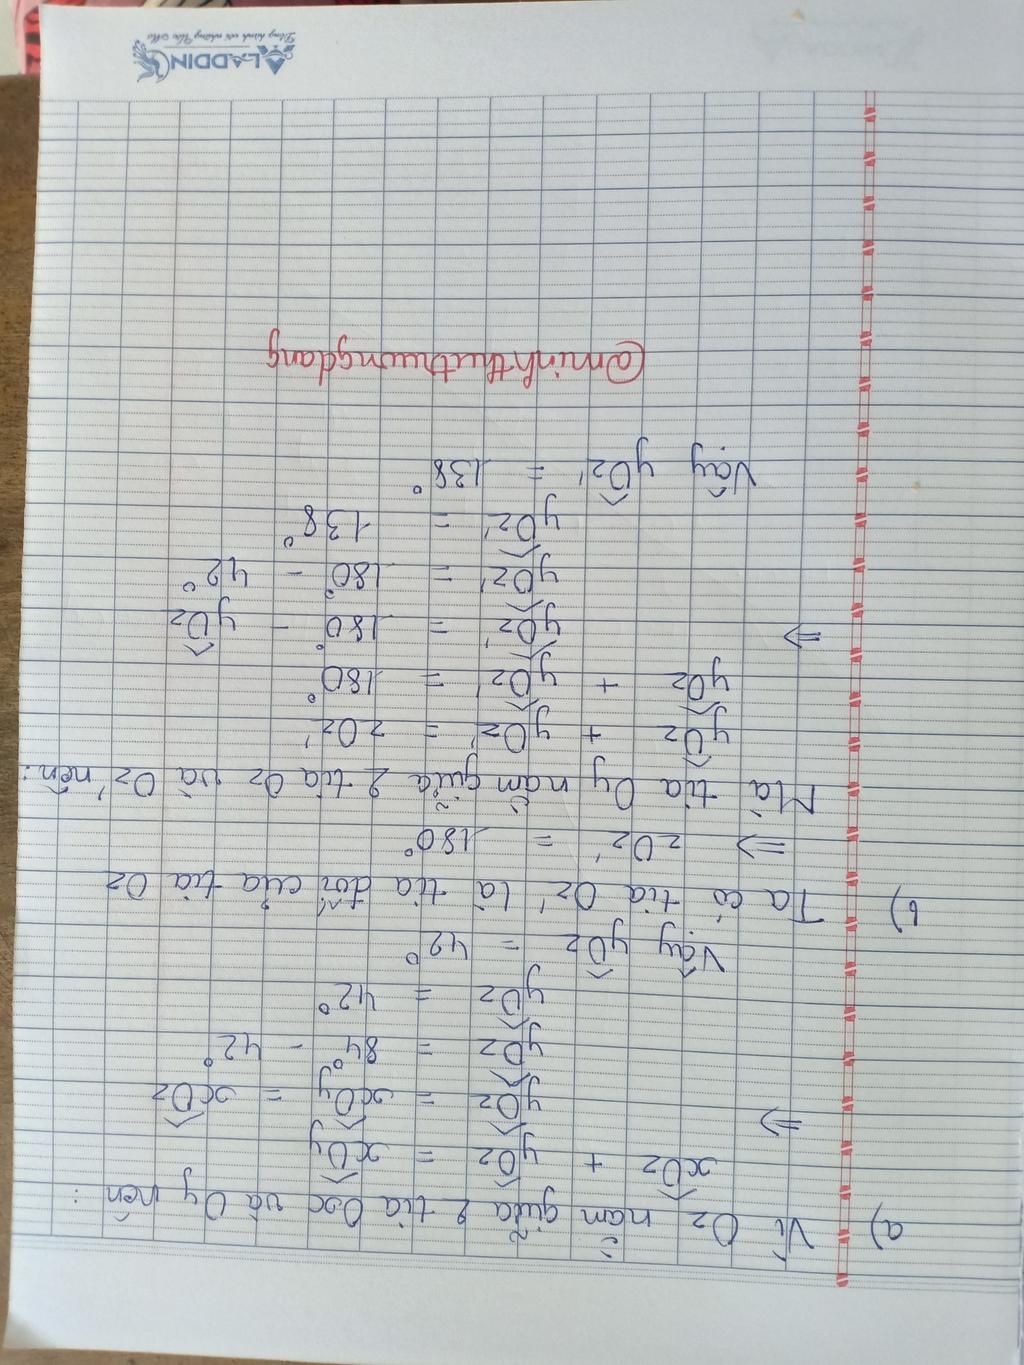 a) Vì Oz nằm giữa 2 tia Ox và Oy nên :
xOz + yOz = xOy
=> yOz = xOy = xOz
yOz = 84° - 42°
yOz = 42°
Vậy yOz = 42°
b) Ta có tia Oz' là tia đối của tia Oz
=> zOz' = 180°
Mà tia Oy nằm giữa 2 tia Oz và Oz' nên :
yOz + yOz' = zOz'
yOz + yOz' = 180°
=> yOz' = 180° - yOz
yOz' = 180° - 42°
yOz' = 138°
Vậy yOz' = 138°
@minhthutruongdang
ALADDIN